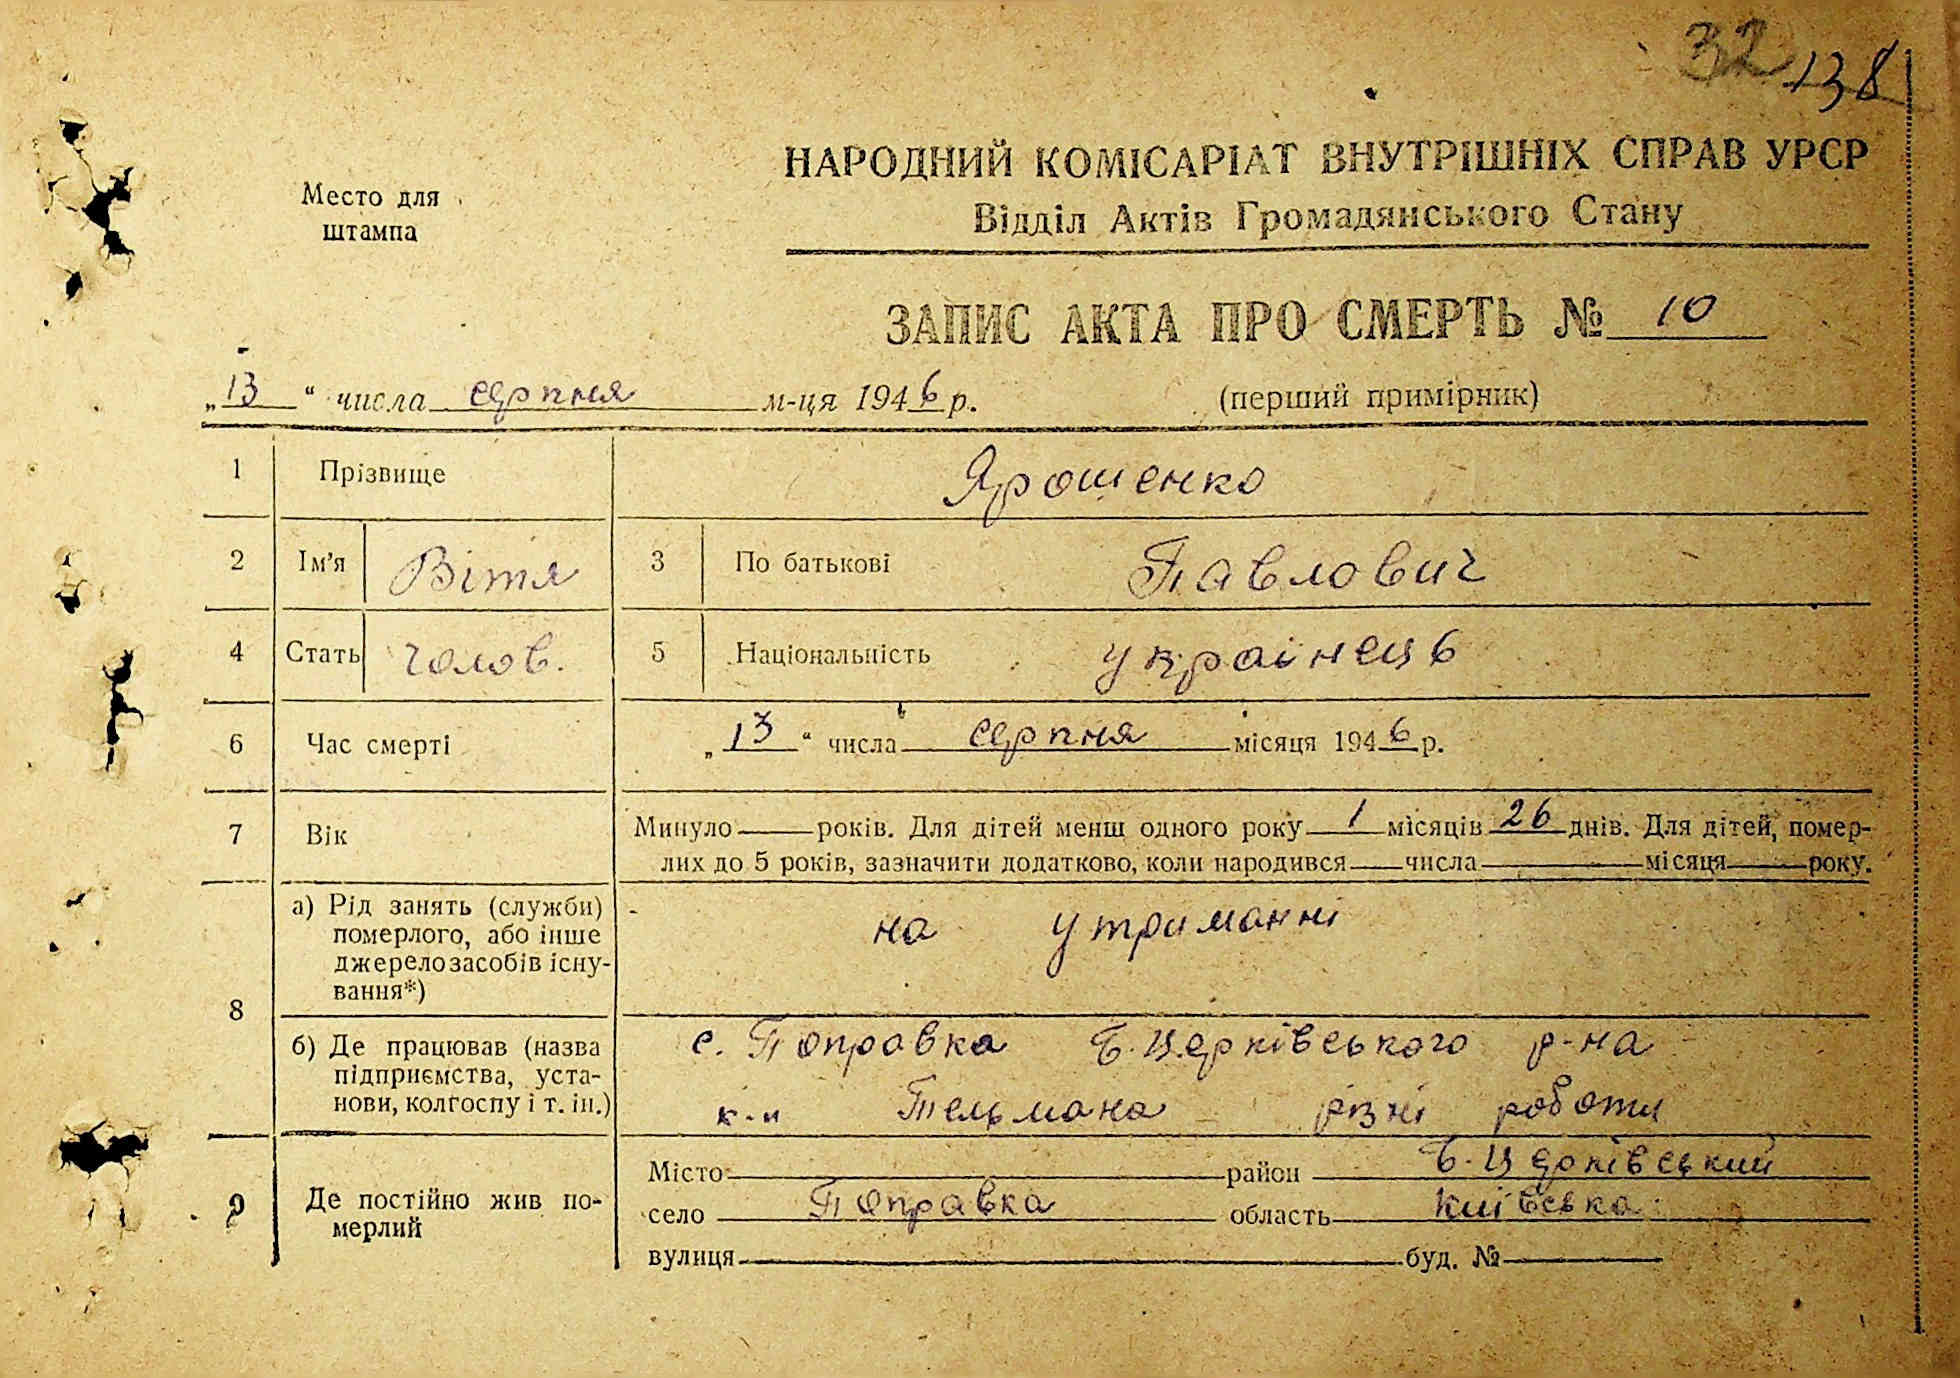 32 138
НАРОДНИЙ КОМІСАРІАТ ВНУТРІШНІХ СПРАВ УРСР
Место для
штампа
Відділ Актів Громадянського Стану
ЗАПИС АКТА ПРО СМЕРТЬ № 10
„13“ числа серпня м-ця 1946 р. (перший примірник)
1 Прізвище Ярошенко
2 Ім'я Вітя 3 По батькові Павлович
4 Стать чолов. 5 Національність українець
6 Час смерті „13“ числа серпня місяця 1946 р.
7 Вік Минуло років. Для дітей менш одного року 1 місяців 26 днів. Для дітей, помер-
лих до 5 років, зазначити додатково, коли народився числа місяця року.
8 а) Рід занять (служби)
померлого, або інше
джерело засобів існу-
вання*)
на утриманні
б) Де працював (назва
підприємства, уста-
нови, колгоспу і т. ін.)
с. Поправка Б. Церківського р-на
к-п Тельмана різні роботи
9 Де постійно жив по-
мерлий
Місто район Б-Церківський
село Поправка область Київська
вулиця буд. №